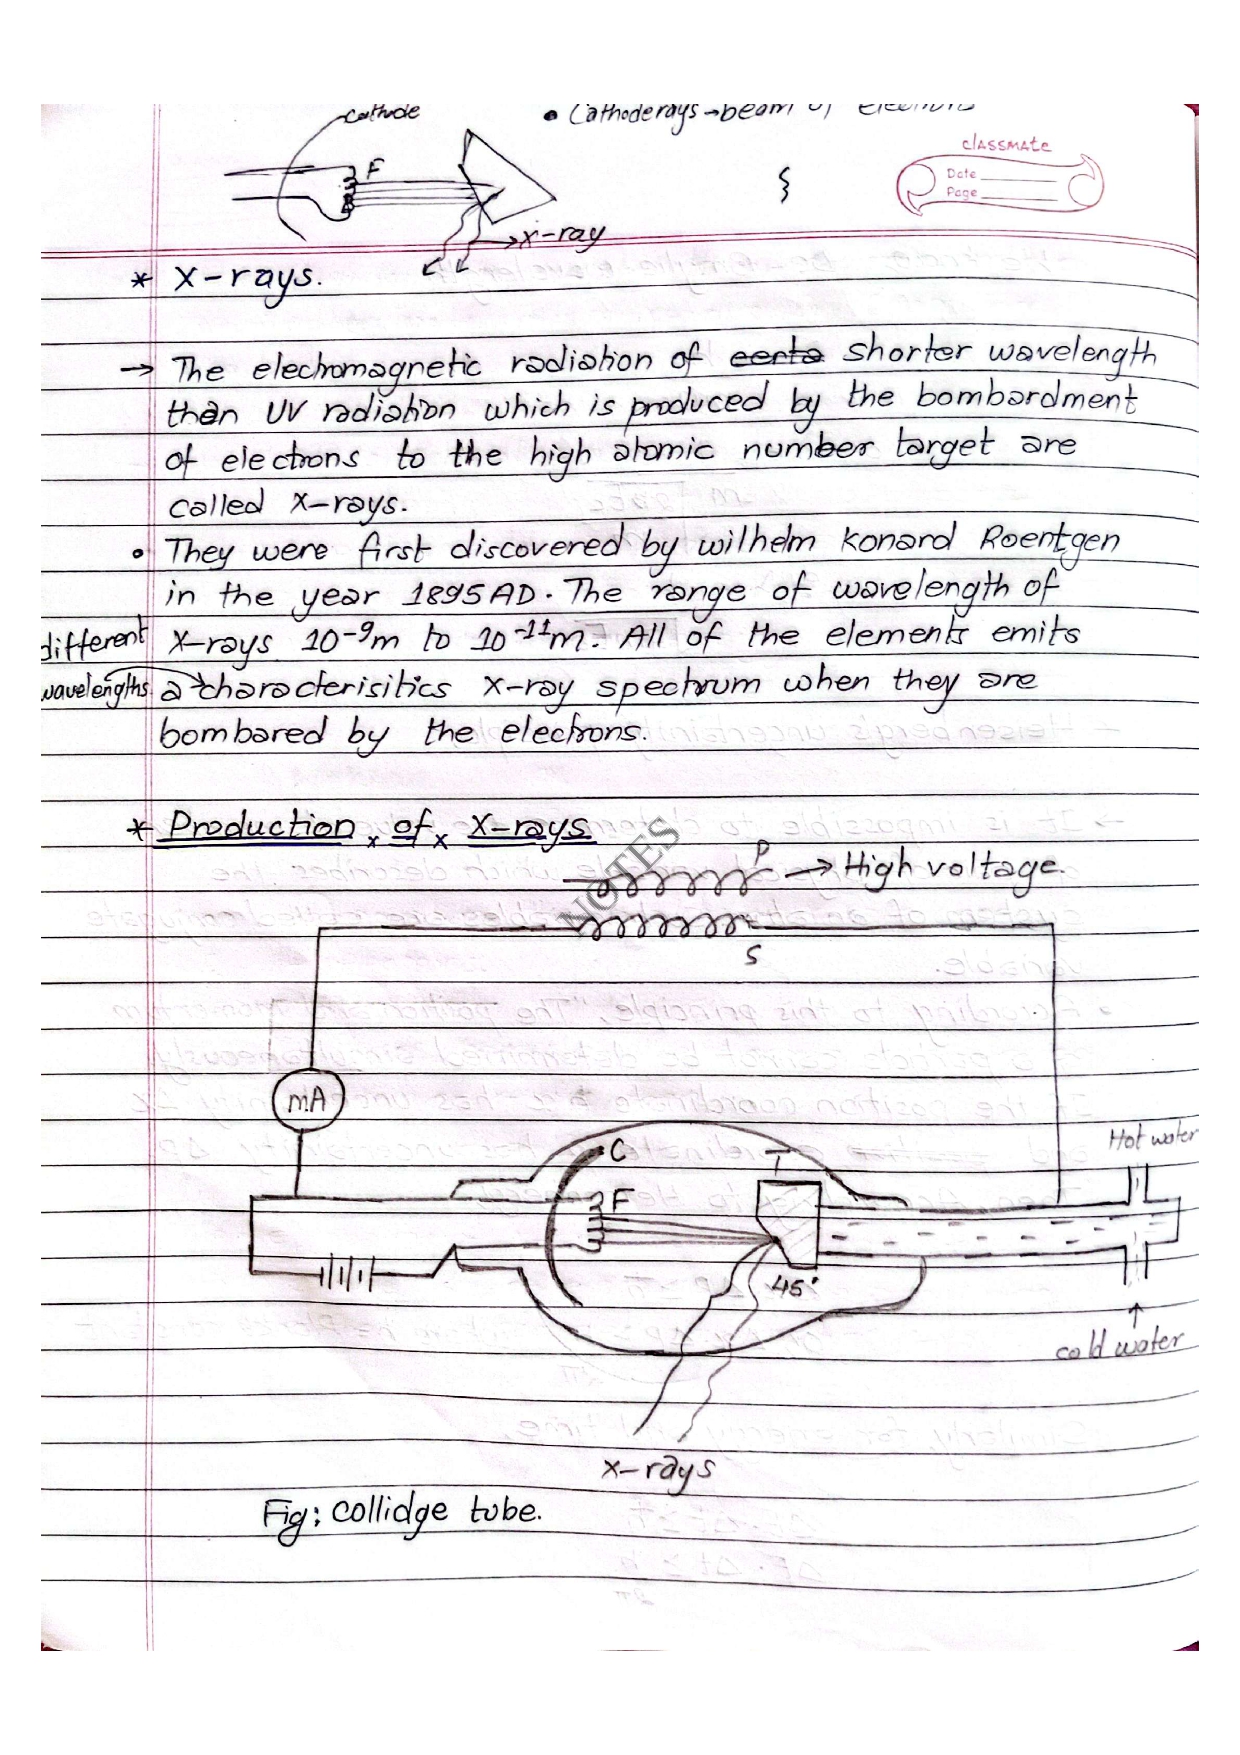 cathode
• Cathode rays → beam of electrons
F
classmate
Date
Page
x-ray
* X-rays.
→ The electromagnetic radiation of certa shorter wavelength
than UV radiation which is produced by the bombardment
of electrons to the high atomic number target are
called X-rays.
• They were first discovered by wilhelm konard Roentgen
in the year 1895 AD. The range of wavelength of
different X-rays 10⁻⁹m to 10⁻¹¹m. All of the elements emits
wavelengths a characterisitics X-ray spectrum when they are
bombared by the electrons.
* Production of X-rays
NOTES
P → High voltage.
S
mA
Hot water
C
T
F
45°
cold water
x-rays
Fig: Collidge tube.